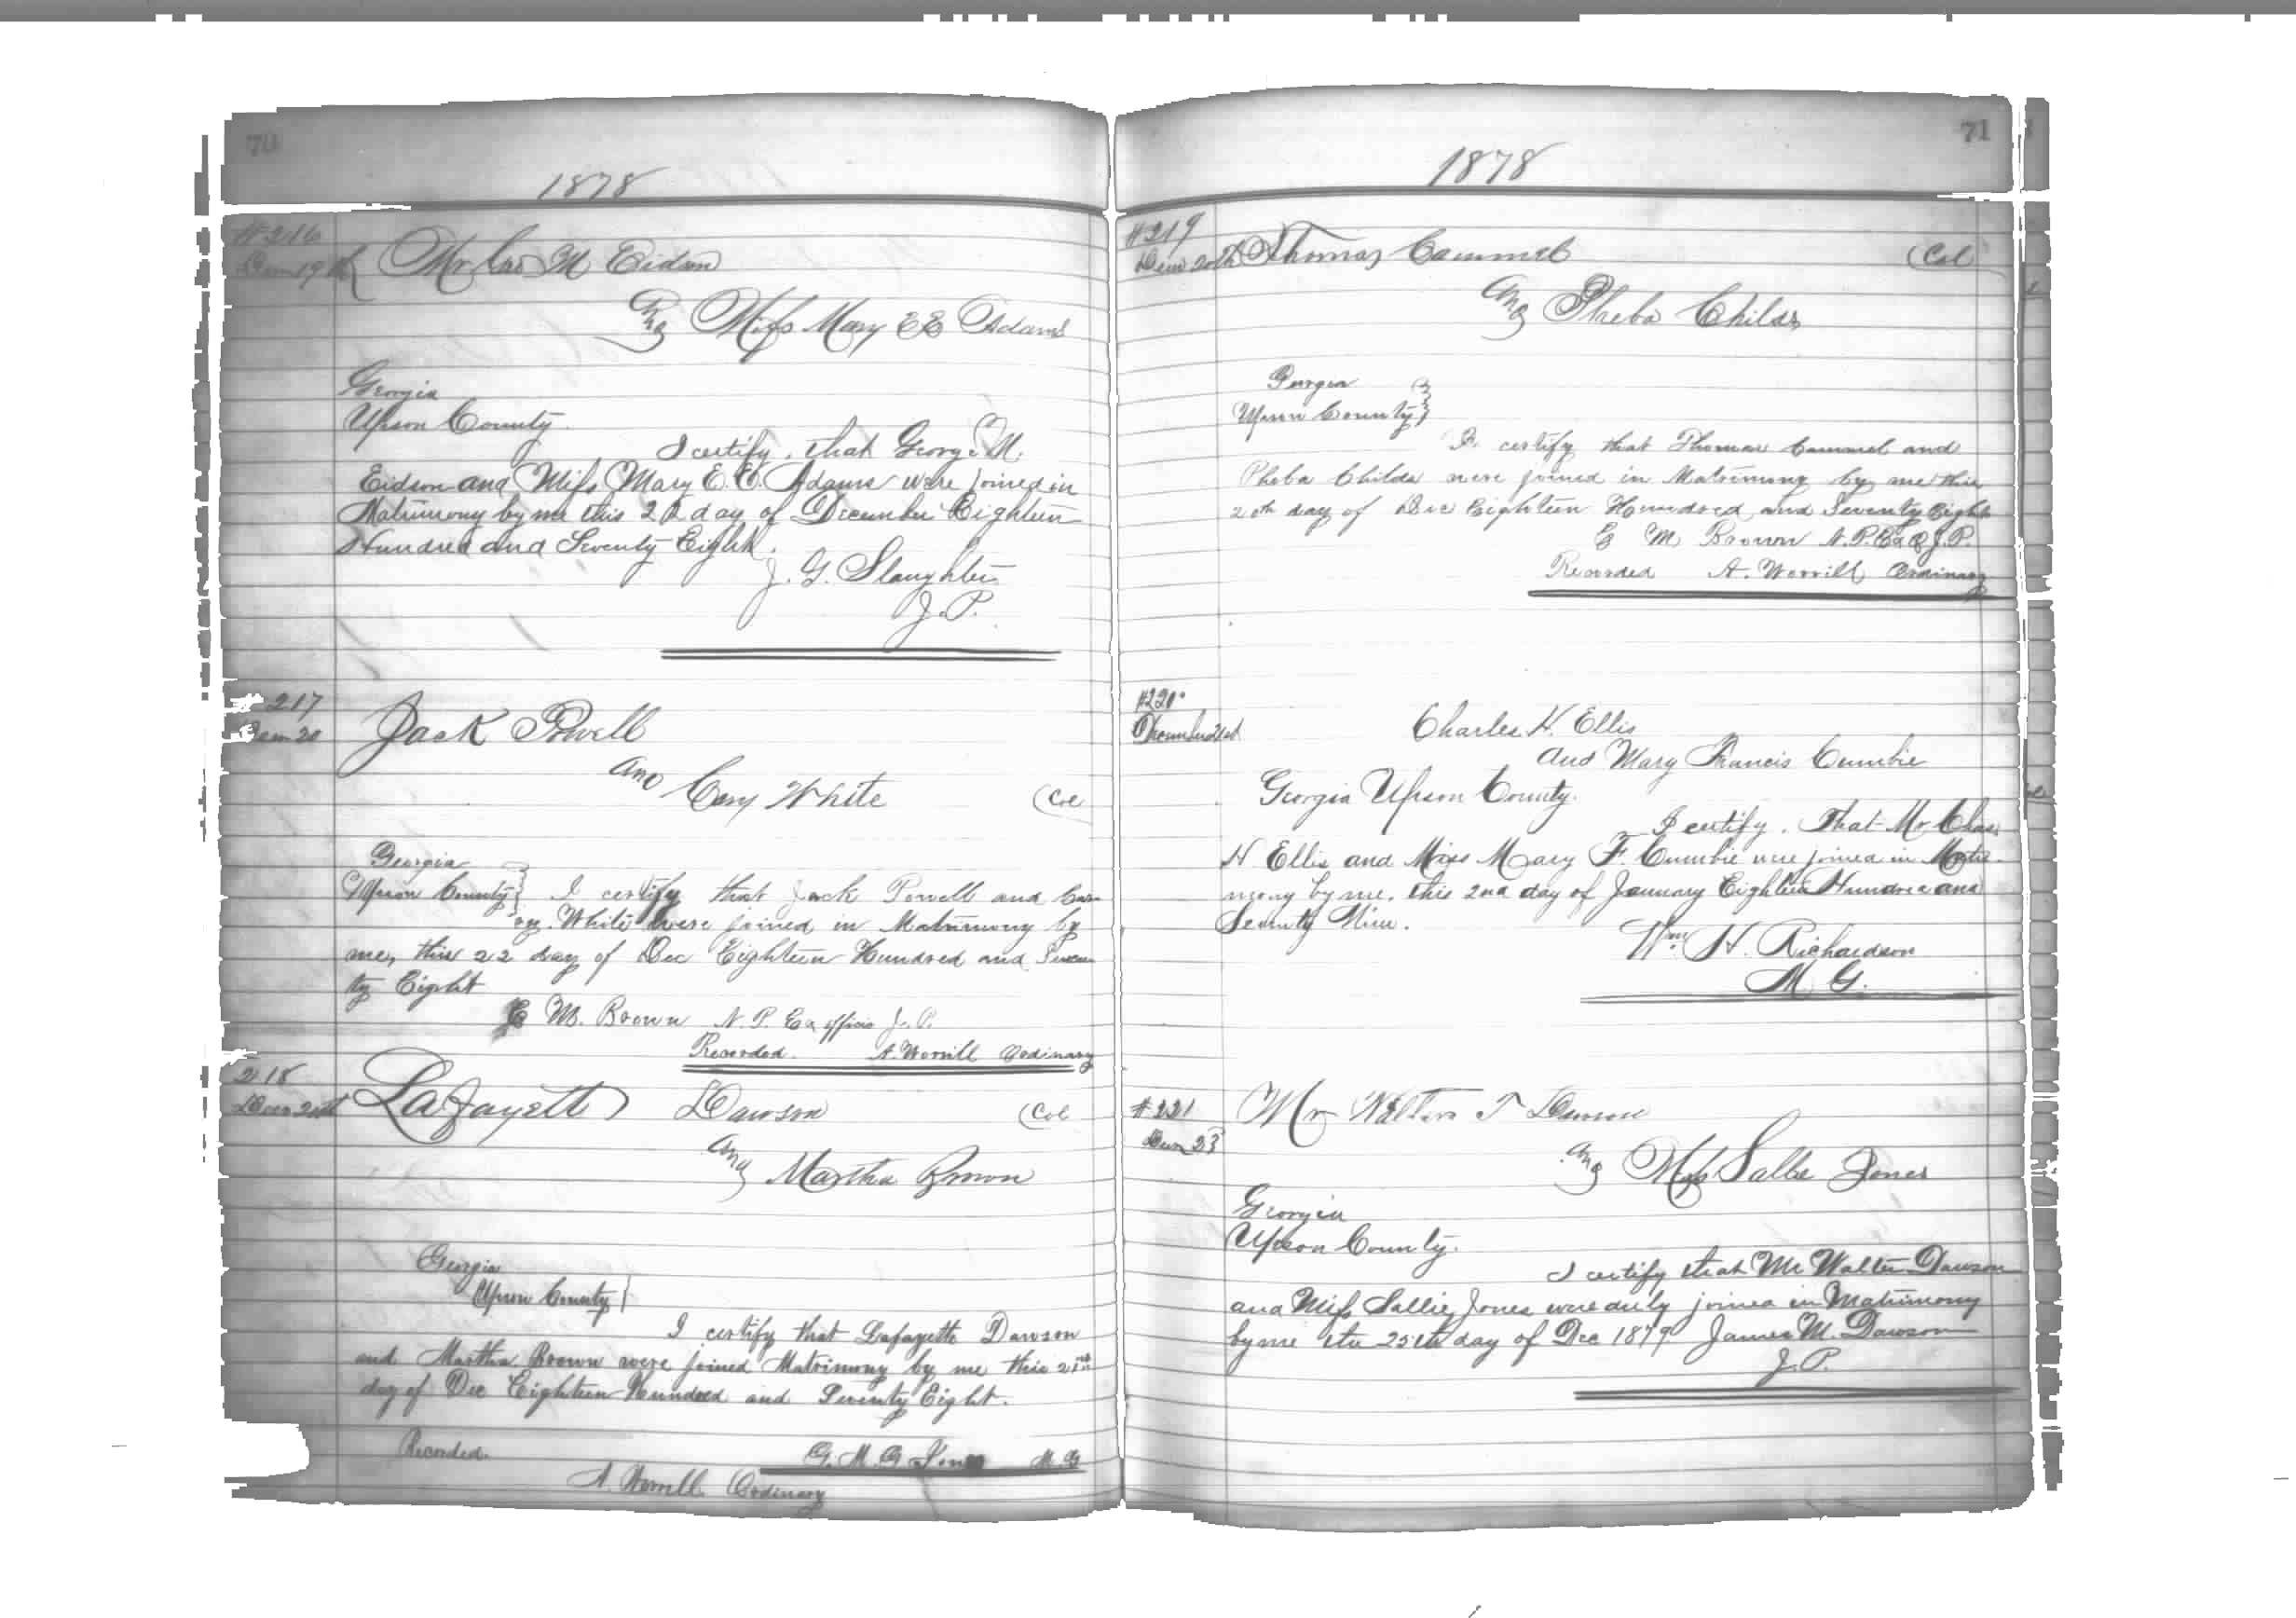 70
1878
#216
Dem 19th Mr Geo M Eidson
and Miss Mary E E Adams
Georgia
Upson County.
I certify. that George M.
Eidson and Miss Mary E. E. Adams were joined in
Matrimony by me this 22 day of December Eighteen
Hundred and Seventy Eight.
J. G. Slaughter
J. P.
217
Dem 20 Jack Powell
and Cary White (Col
Georgia
Upson County } I certify that Jack Powell and
White were joined in Matrimony by
me, this 22 day of Dec Eighteen Hundred and Seven
ty Eight
E M. Brown N. P. Ex officio J. P.
Recorded. A. Worrill Ordinary
218
Dem 20th LaFayette Dawson (Col
and Martha Brown
Georgia
Upson County
I certify that Lafayette Dawson
and Martha Brown were joined Matrimony by me this
day of Dec Eighteen Hundred and Seventy Eight.
Recorded. G. M. G. M. G
A. Worrill Ordinary
71
1878
#219
Dem 20th Thomas Cammel (Col
and Pheba Childs
Georgia
Upson County }
I certify that Thomas Cammel and
Pheba Childs were joined in Matrimony by me this
20th day of Dec Eighteen Hundred and Seventy Eight
E M Brown N. P. Ex O J. P.
Recorded A. Worrill Ordinary
#220
December 21st Charles H. Ellis
and Mary Francis Cumbie
Georgia Upson County.
I certify. That Mr Chas
H Ellis and Miss Mary F. Cumbie were joined in Matri-
mony by me. this 2nd day of January Eighteen Hundred and
Seventy Nine.
Wm H. Richardson
M G.
#221 Mr Walter T Dawson
Dem 23
and Miss Sallie Jones
Georgia
Upson County.
I certify that Mr Walter Dawson
and Miss Sallie Jones were duly joined in Matrimony
by me the 25th day of Dec 1879 James M. Dawson
J. P.